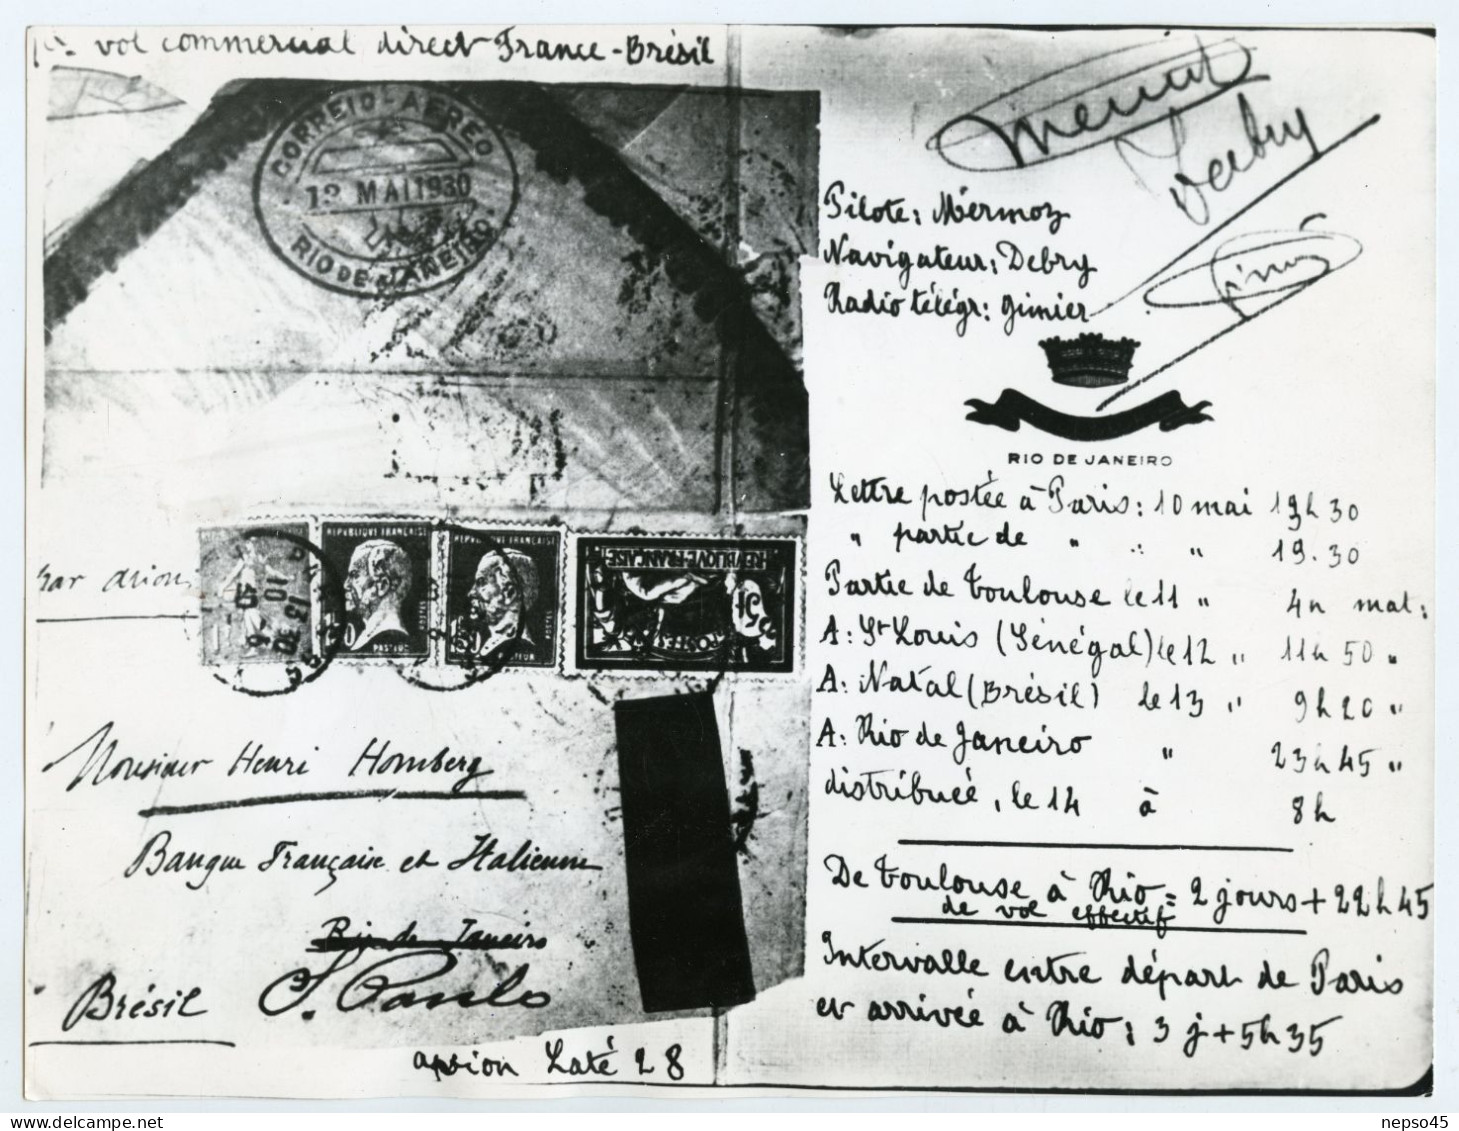 1er vol commercial direct France-Brésil
CORREIO-AEREO
12 MAI 1930
RIO DE JANEIRO
Par avion
REPUBLIQUE FRANÇAISE
REPUBLIQUE FRANÇAISE
REPUBLIQUE FRANÇAISE
5f
POSTES
PASTEUR
Monsieur Henri Homberg
Banque Française et Italienne
Rio de Janeiro
Brésil S. Paulo
avion Laté 28
Pilote: Mermoz
Navigateur: Debry
Radio télégr: gimier
RIO DE JANEIRO
Lettre postée à Paris: 10 mai 19h 30
" partie de " " " 19.30
Partie de Toulouse le 11 " 4h mat:
A: St Louis (Sénégal) le 12 " 11h 50 "
A: Natal (Brésil) le 13 " 9h 20 "
A: Rio de Janeiro " 23h 45 "
distribuée, le 14 à 8h
De Toulouse à Rio = 2 jours + 22h 45
de vol effectif
Intervalle entre départ de Paris
et arrivée à Rio: 3 j + 5h 35
nepso45